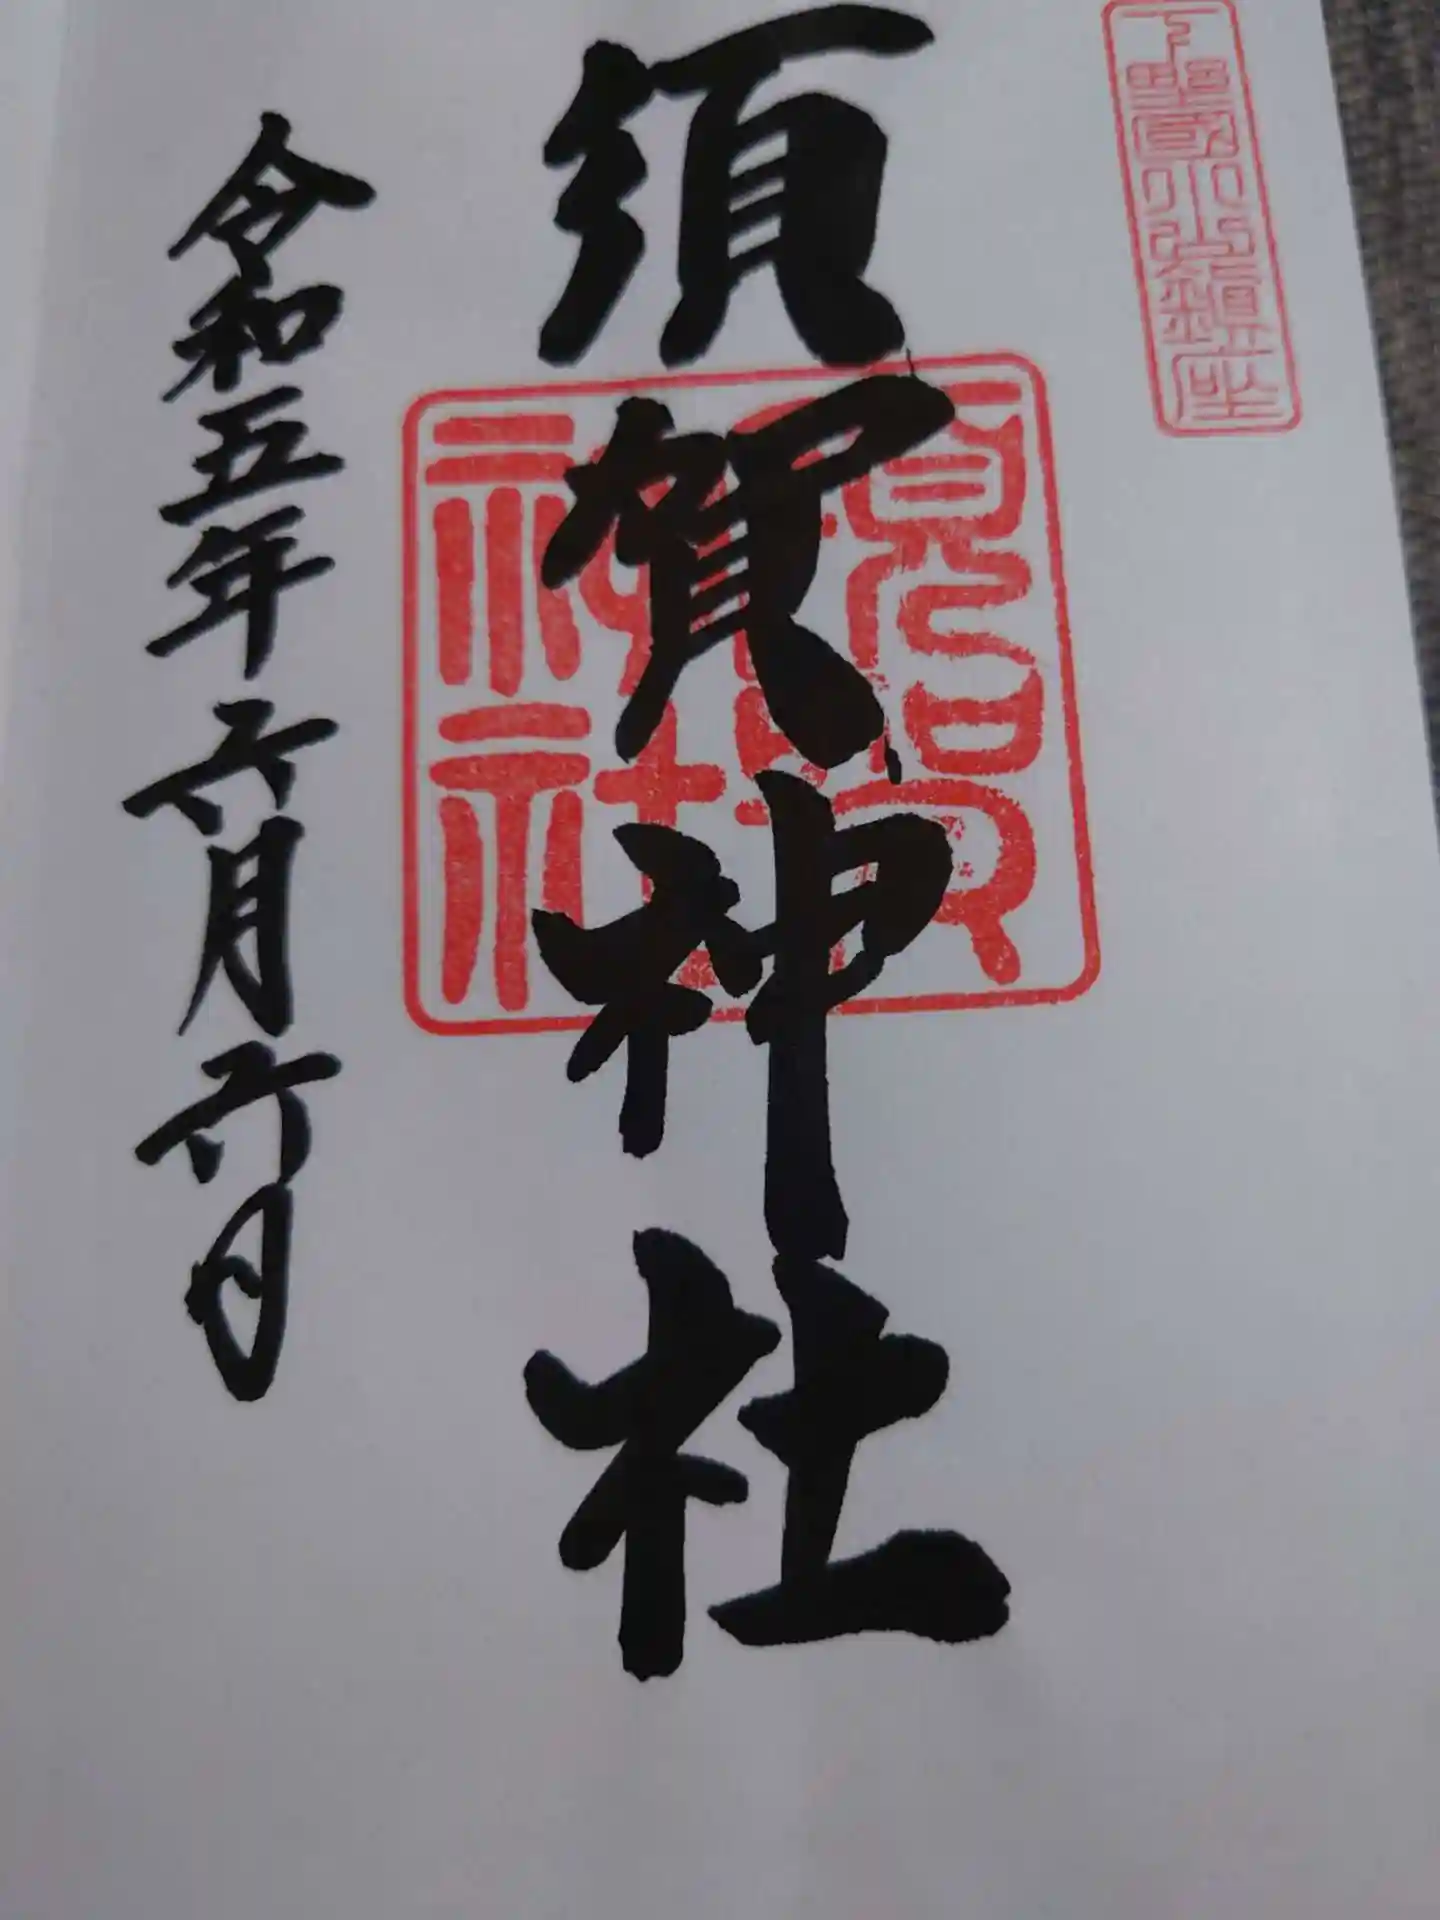 下野國小山鎮座
須賀神社
須賀
神社
令和五年六月六日